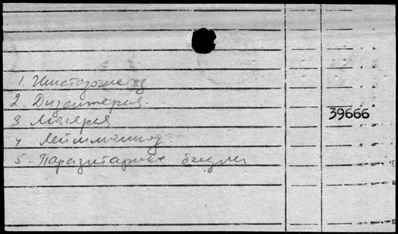 1. Шистозоматоз
2. Дизентерия
3 Малярия
39666
4 Лейшманиоз
5. Паразитарные